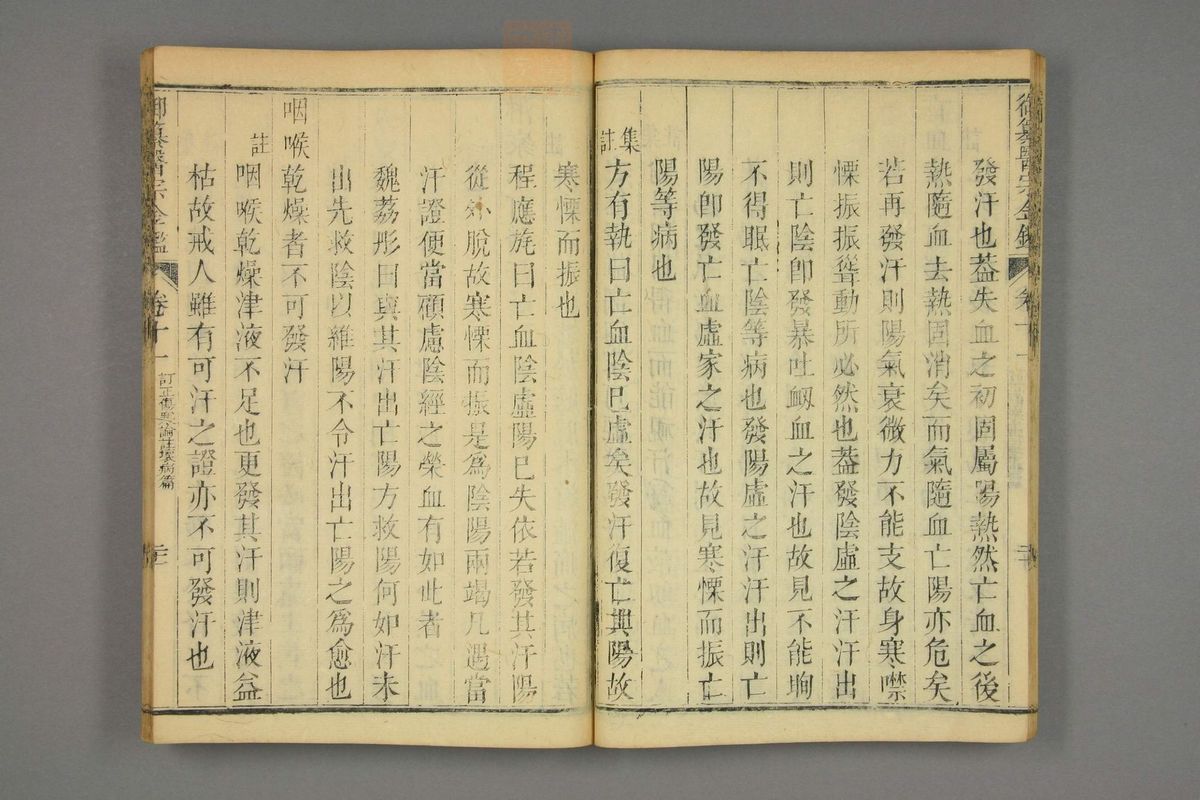 御纂醫宗金鑑 卷十一
發汗也葢失血之初固屬陽熱然亡血之後
熱隨血去熱固消矣而氣隨血亡陽亦危矣
若再發汗則陽氣衰微力不能支故身寒噤
慄振振聳動所必然也葢發陰虛之汗汗出
則亡陰卽發暴吐衂血之汗也故見不能眴
不得眠亡陰等病也發陽虛之汗汗出則亡
陽卽發亡血虛家之汗也故見寒慄而振亡
陽等病也
集註
方有執曰亡血陰已虛矣發汗復亡其陽故
寒慄而振也
程應旄曰亡血陰虛陽已失依若發其汗陽
從外脫故寒慄而振是爲陰陽兩竭凡遇當
汗證便當顧慮陰經之榮血有如此者
魏荔彤曰與其汗出亡陽方救陽何如汗未
出先救陰以維陽不令汗出亡陽之爲愈也
咽喉乾燥者不可發汗
註
咽喉乾燥津液不足也更發其汗則津液益
枯故戒人雖有可汗之證亦不可發汗也
御纂醫宗金鑑 卷十一 訂正傷寒論註壞病篇